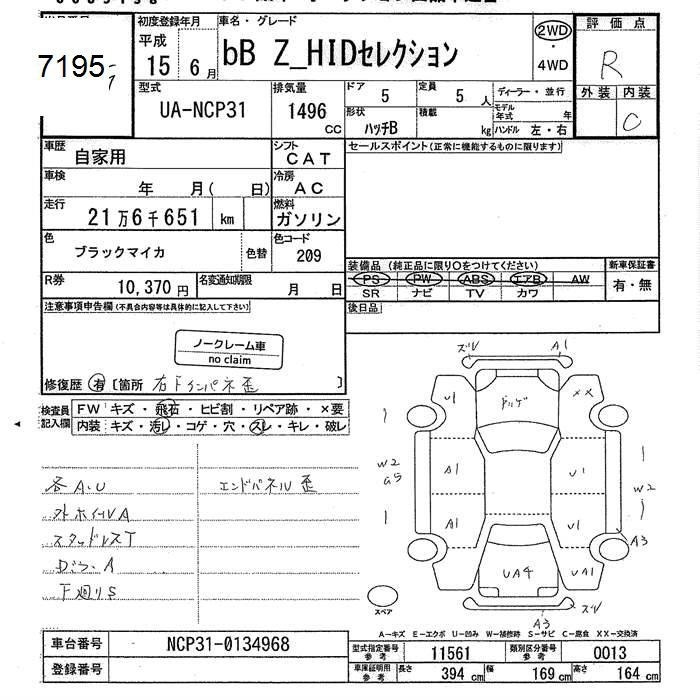 7195
初度登録年月
車名・グレード
平成
15 6月
bB Z_HIDセレクション
2WD
・
4WD
評価点
R
外装 内装
C
型式
UA-NCP31
排気量
1496
CC
ドア
5
定員
5 人
形状
ハッチB
積載
kg
ディーラー・並行
モデル年式
年
ハンドル 左・右
車歴
自家用
シフト
CAT
車検
年 月( 日)
冷房
AC
走行
21万6千651 km
燃料
ガソリン
色
ブラックマイカ
色替
色コード
209
R券
10,370 円
名変通知期限
月 日
セールスポイント(正常に機能するものに限ります)
装備品(純正品に限り○をつけてください)
PS PW ABS エアB AW
SR ナビ TV カワ
新車保証書
有・無
後日品
注意事項申告欄(不具合内容等は具体的に記入して下さい)
ノークレーム車
no claim
修復歴 有 [箇所 右ドインパネ歪 ]
検査員
記入欄
FW キズ・飛石・ヒビ割・リペア跡・×要
内装 キズ・汚レ・コゲ・穴・スレ・キレ・破レ
各A.U
外ホイールA
スタッドレスT
下廻りS
エンドパネル歪
ズレ
A1
U1
XX
A1
U1
W2
W2
A1
U1
A3
UA4
UA1
ズレ
A3
スペア
A-キズ E-エクボ U-凹み W-補修跡 S-サビ C-腐食 XX-交換済
車台番号
NCP31-0134968
登録番号
型式指定番号
参考
11561
類別区分番号
参考
0013
車庫証明用
参考
長さ
394 cm
幅
169 cm
高さ
164 cm